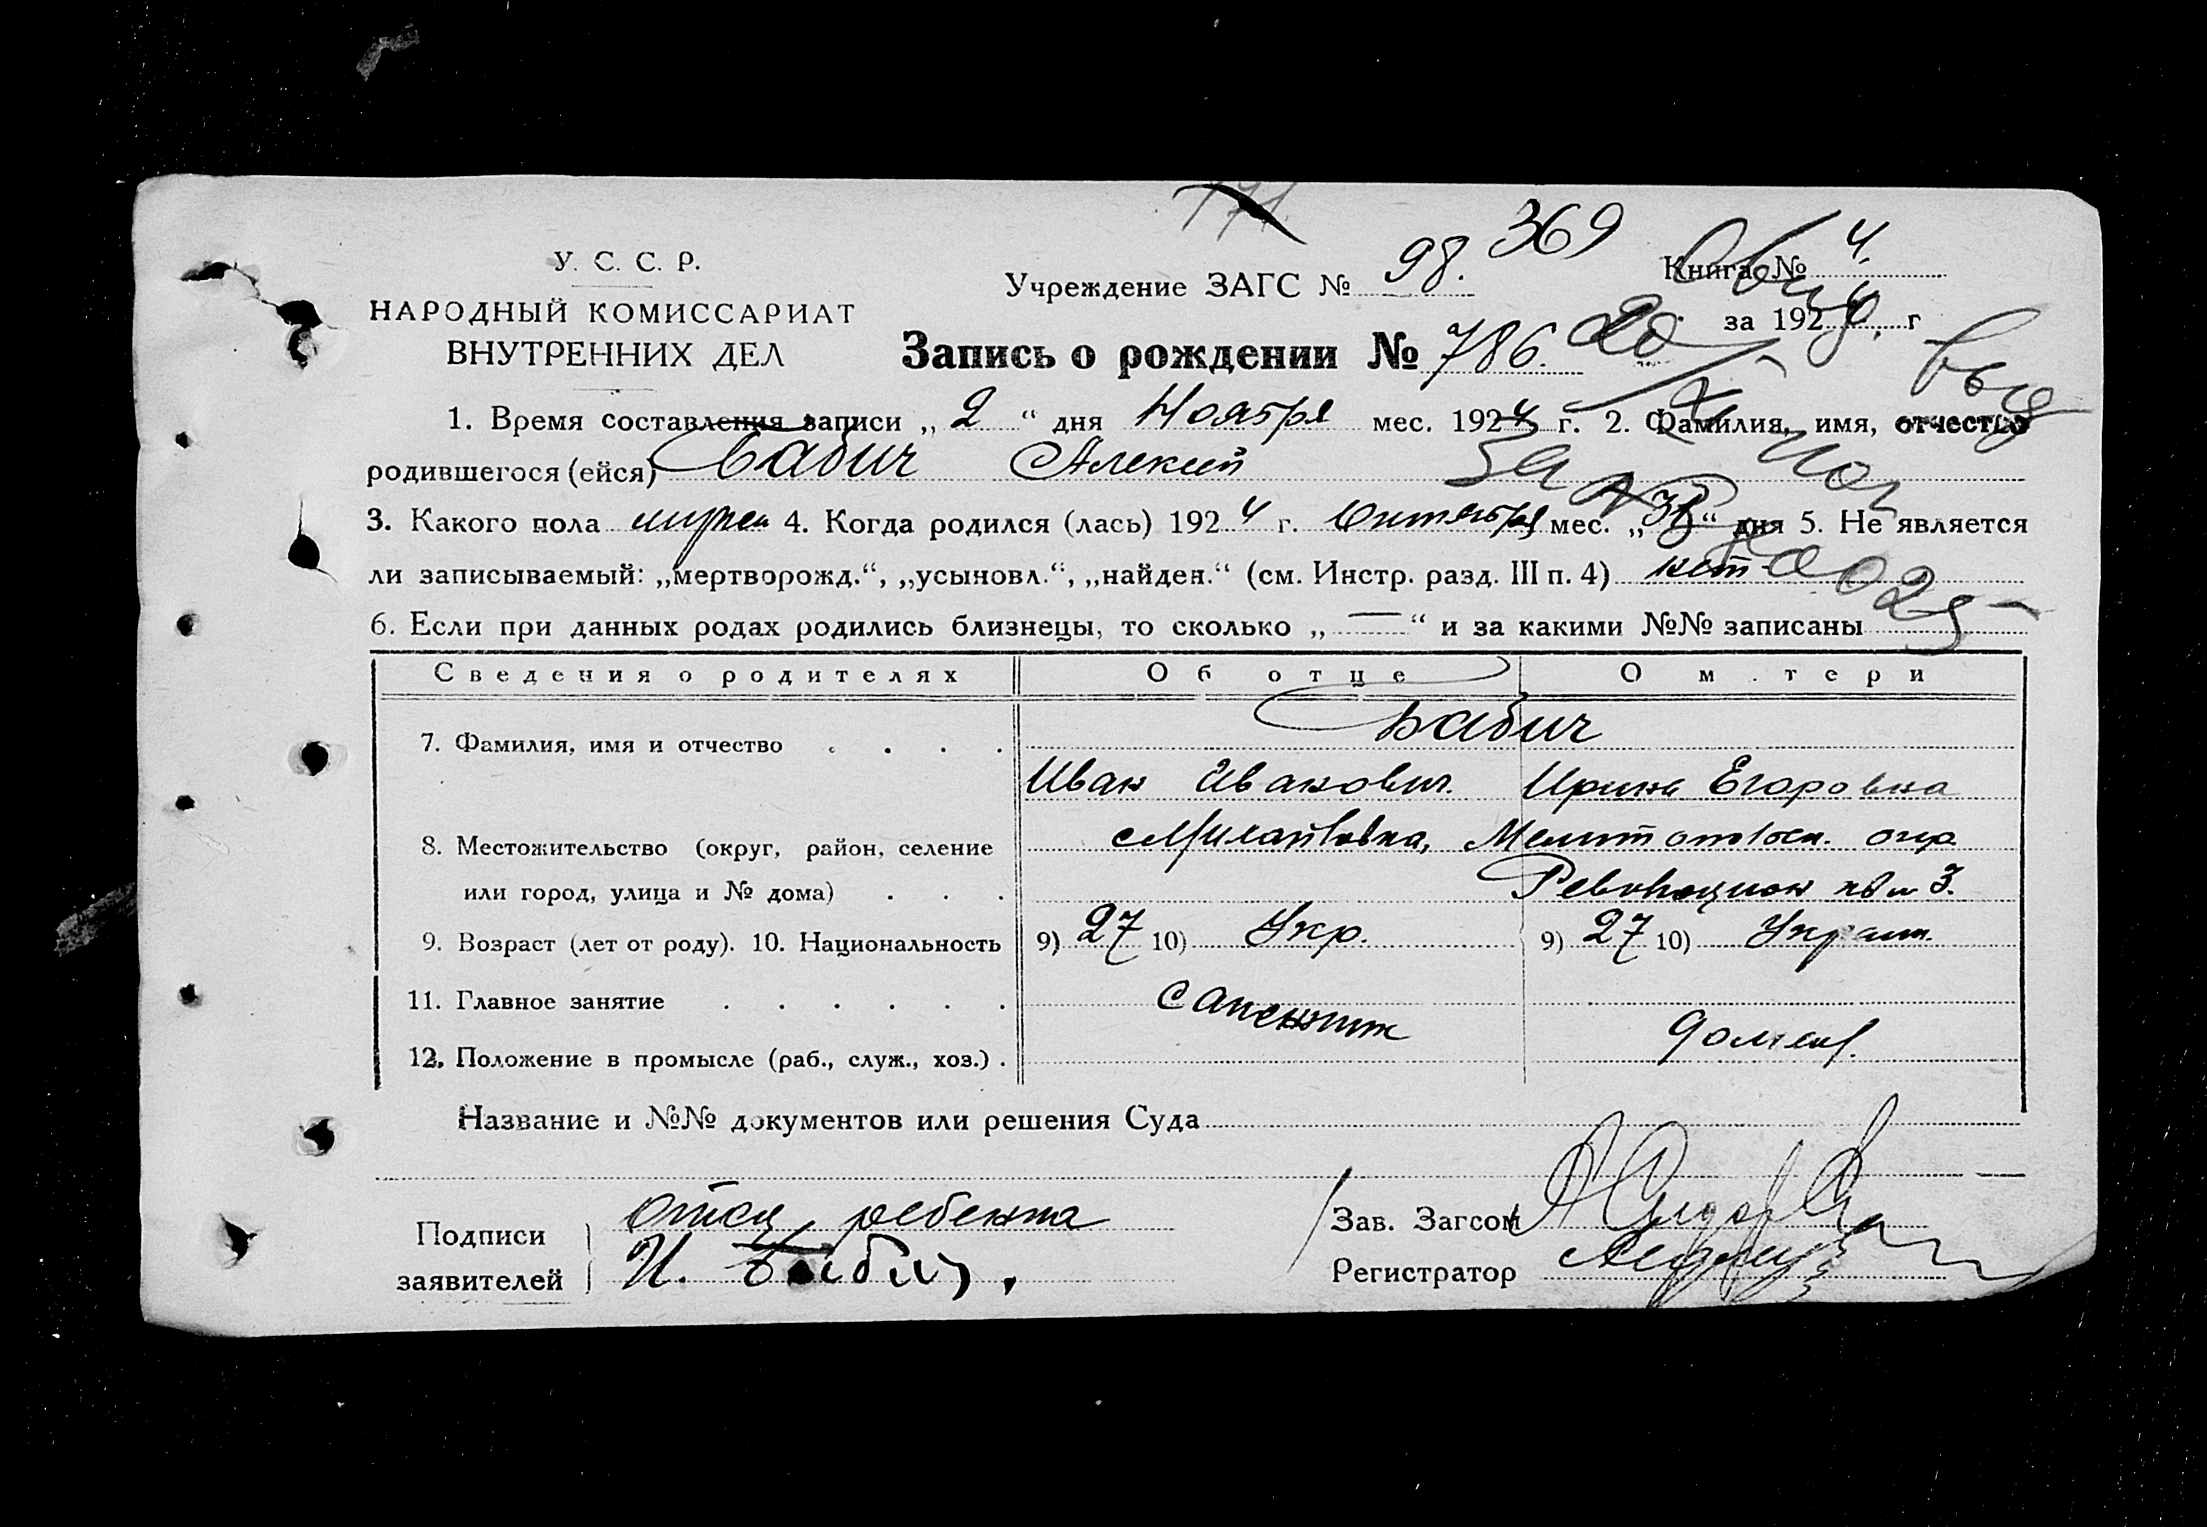 171
У. С. С. Р.
НАРОДНЫЙ КОМИССАРИАТ
ВНУТРЕННИХ ДЕЛ
Учреждение ЗАГС № 98. 369
Книга № 4.
за 1924 г
Запись о рождении № 786.
1. Время составления записи „ 2 “ дня Ноября мес. 1924 г. 2. Фамилия, имя, отчество
родившегося (ейся) Бабич Алексей
3. Какого пола мужск 4. Когда родился (лась) 1924 г. Октября мес. „ “ дня 5. Не является
ли записываемый: „мертворожд.“, „усыновл.“, „найден.“ (см. Инстр. разд. III п. 4) нет
6. Если при данных родах родились близнецы, то сколько „ — “ и за какими №№ записаны
Сведения о родителях Об отце О м.тери
7. Фамилия, имя и отчество . . . . Бабич
Иван Иванович. Ирина Егоровна
8. Местожительство (округ, район, селение Мелитопольск. окр
или город, улица и № дома) . . . 3.
9. Возраст (лет от роду). 10. Национальность 9) 27 10) Укр. 9) 27 10) Украин.
11. Главное занятие . . . . . . сапожник
12. Положение в промысле (раб., служ., хоз.) .
Название и №№ документов или решения Суда
Подписи отец ребенка
заявителей И. Бабич.
Зав. Загсом
Регистратор